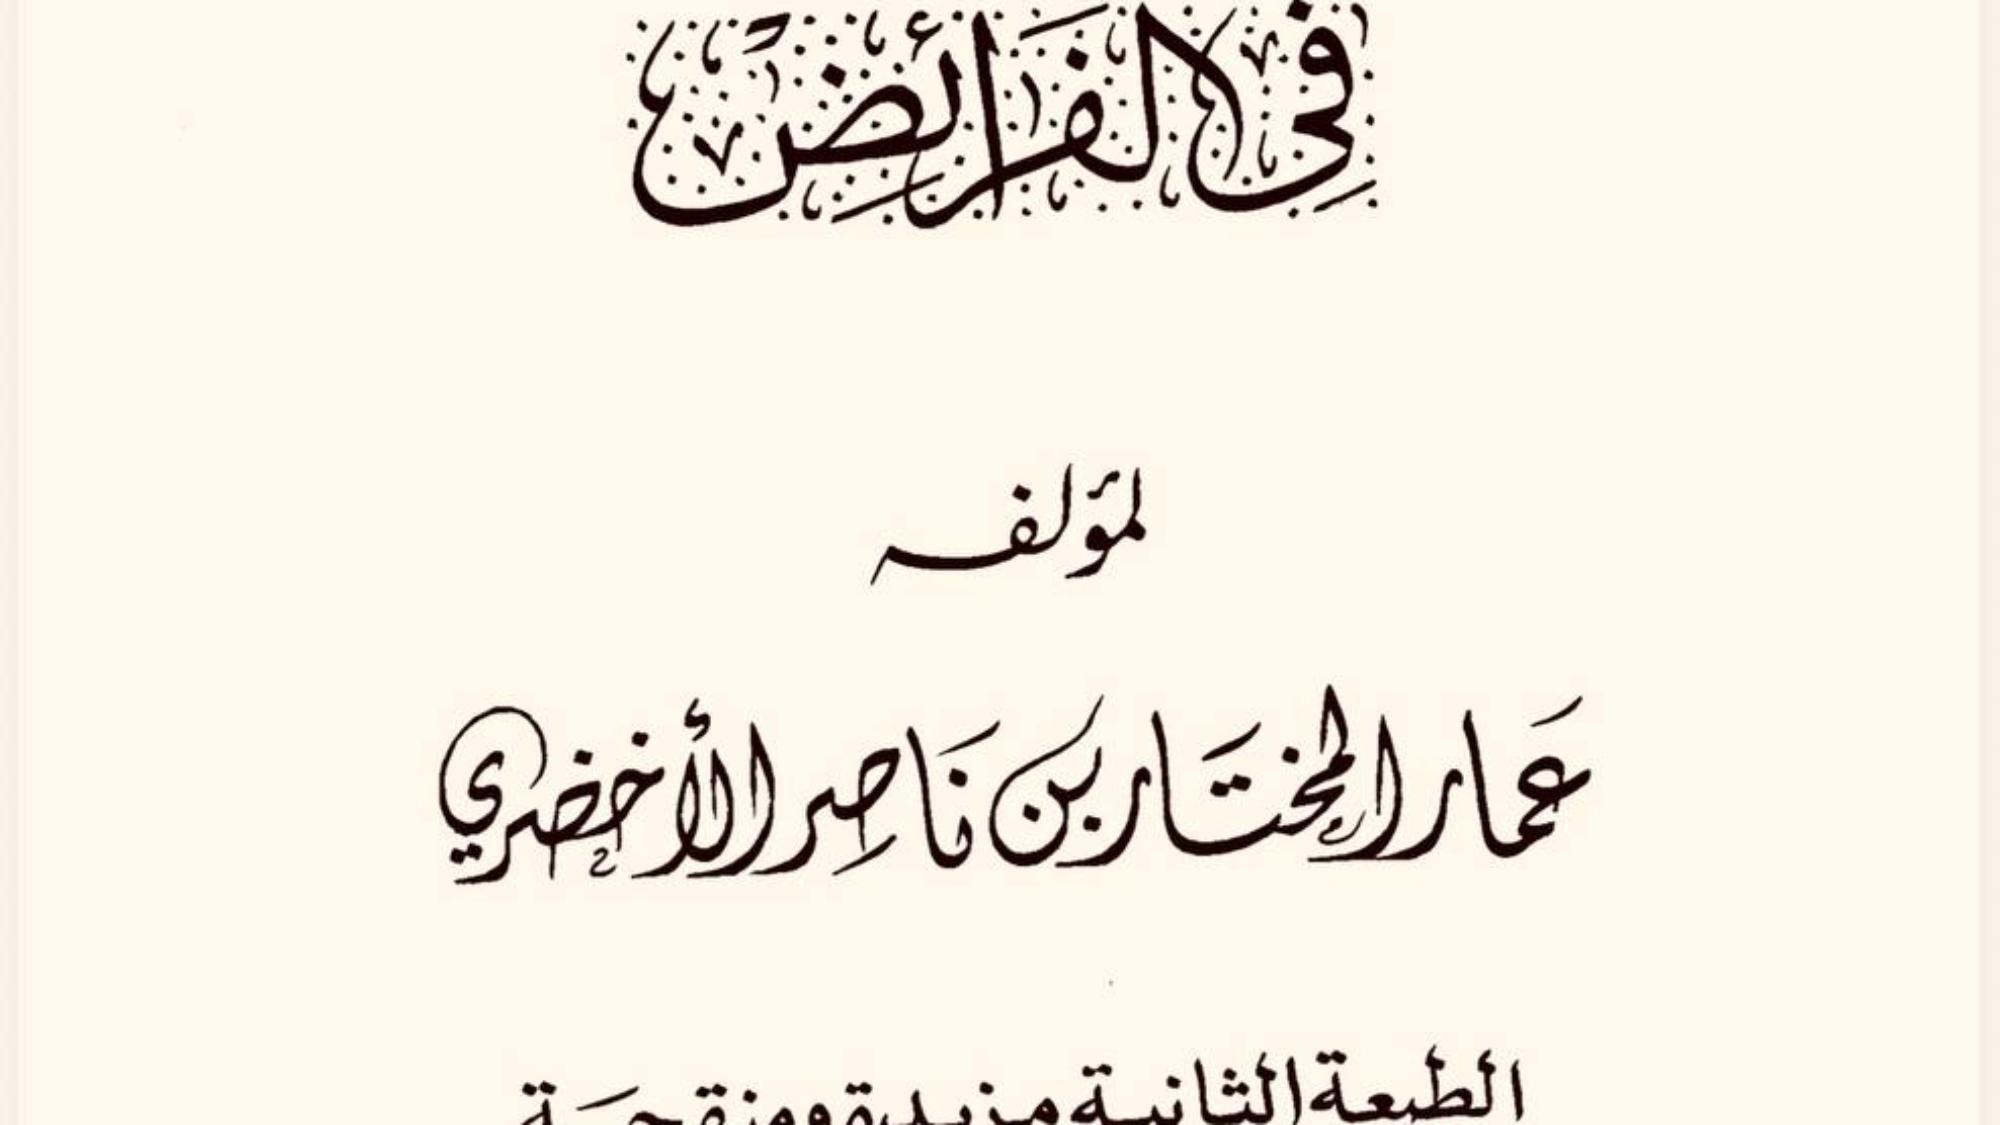 في الفرائض
لمؤلفه
عمار المختار بن ناصر الأخضري
الطبعة الثانية مزيدة ومنقحة